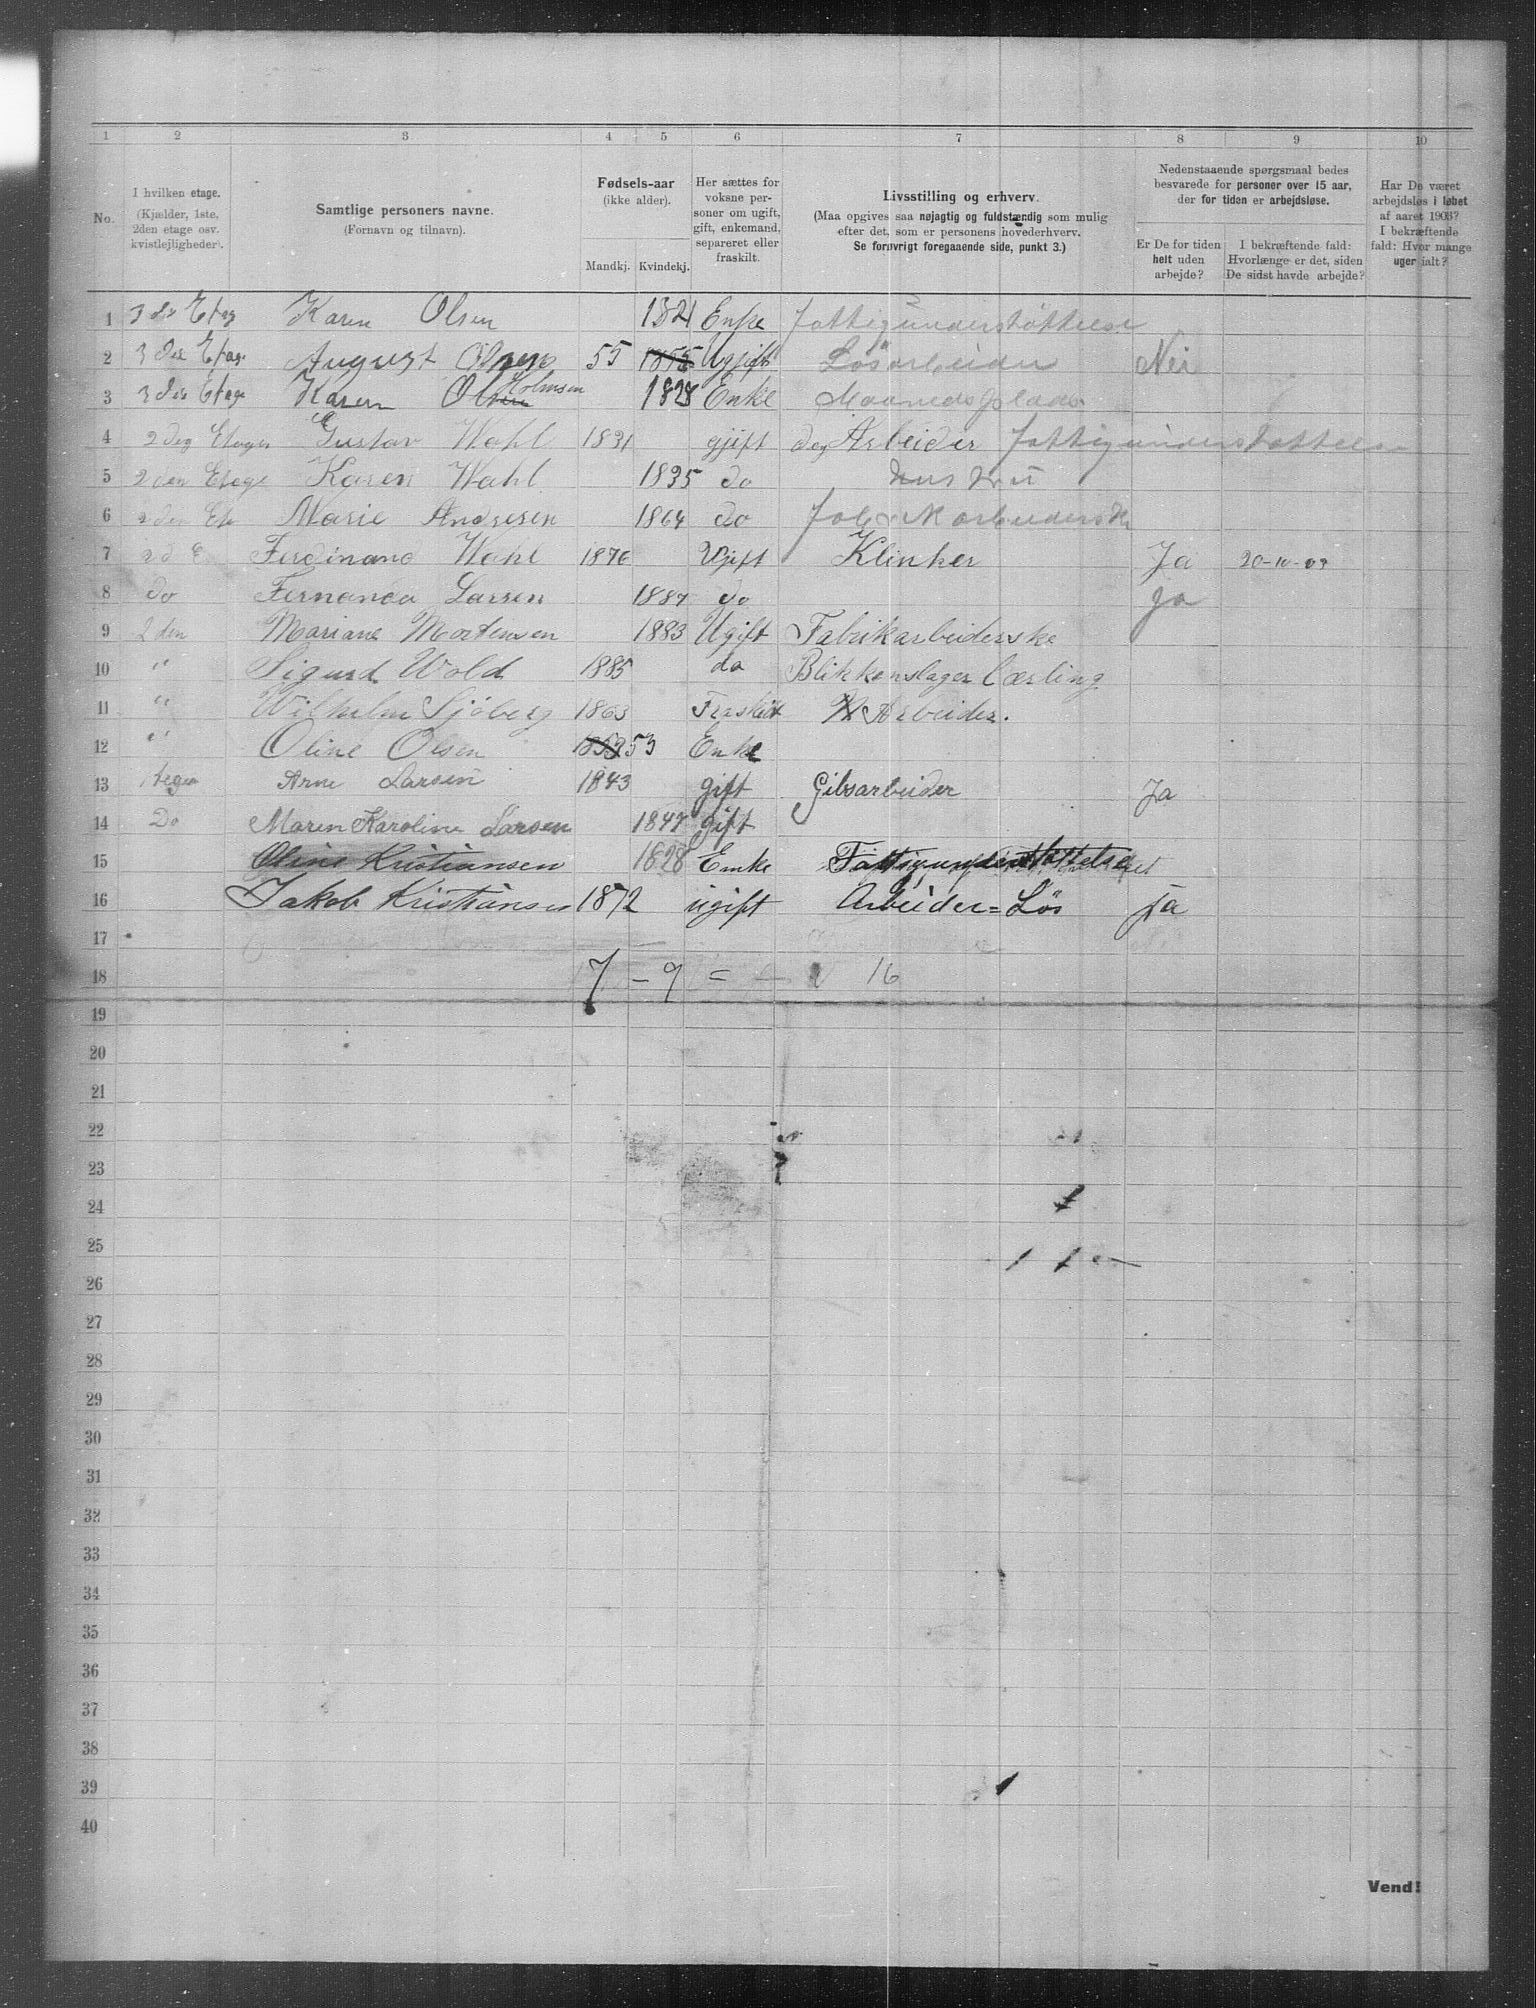 1 2 3 4 5 6 7 8 9 10
No. I hvilken etage. (Kjælder, 1ste, 2den etage osv. kvistlejligheder). Samtlige personers navne. (Fornavn og tilnavn). Fødsels-aar (ikke alder). Mandkj. Kvindekj. Her sættes for voksne personer om ugift, gift, enkemand, separeret eller fraskilt. Livsstilling og erhverv. (Maa opgives saa nøjagtig og fuldstændig som mulig efter det, som er personens hovederhverv. Se forøvrigt foregaaende side, punkt 3.) Nedenstaaende spørgsmaal bedes besvarede for personer over 15 aar, der for tiden er arbejdsløse. Er De for tiden helt uden arbejde? I bekræftende fald: Hvorlænge er det, siden De sidst havde arbejde? Har De været arbejdsløs i løbet af aaret 1903? I bekræftende fald: Hvor mange uger ialt?
1 3 die Etag Karen Olsen 1821 Enke fattigunderstöttelse
2 3 die Etage August Olsen 55 1855 Ugift Lösarbeider Nei
3 3 die Etage Karen Olsen Holmsen 1828 Enke Maanedsplads
4 2 den Etagen Gustav Wahl 1831 gjift Arbeider fattigunderstøttelse
5 2 den Etage Karen Wahl 1835 do hustru
6 2 den Et Marie Andresen 1864 do
7 2 d E Ferdinand Wahl 1876 Ugift Klinker Ja 20-10-03
8 do Fernanda Larsen 1887 do ja
9 2 den Mariane Mortensen 1883 Ugift Fabrikarbeiderske
10 " Sigurd Wold 1885 do Blikkenslager Lærling
11 " Wilhelm Sjöberg 1863 Fraskilt Arbeider.
12 " Oline Olsen 1853 53 Enke
13 Arne Larsen 1843 gift Gibsarbeider Ja
14 Do Maren Karoline Larsen 1847 gift
15 Oline Kristiansen 1828 Emke Fattigunderstøttelse
16 Jakob Kristiansen 1872 ugift Arbeider = Lös ja
17
18 7 - 9 = 16
19
20
21
22
23
24
25
26
27
28
29
30
31
32
33
34
35
36
37
38
39
40
Vend!